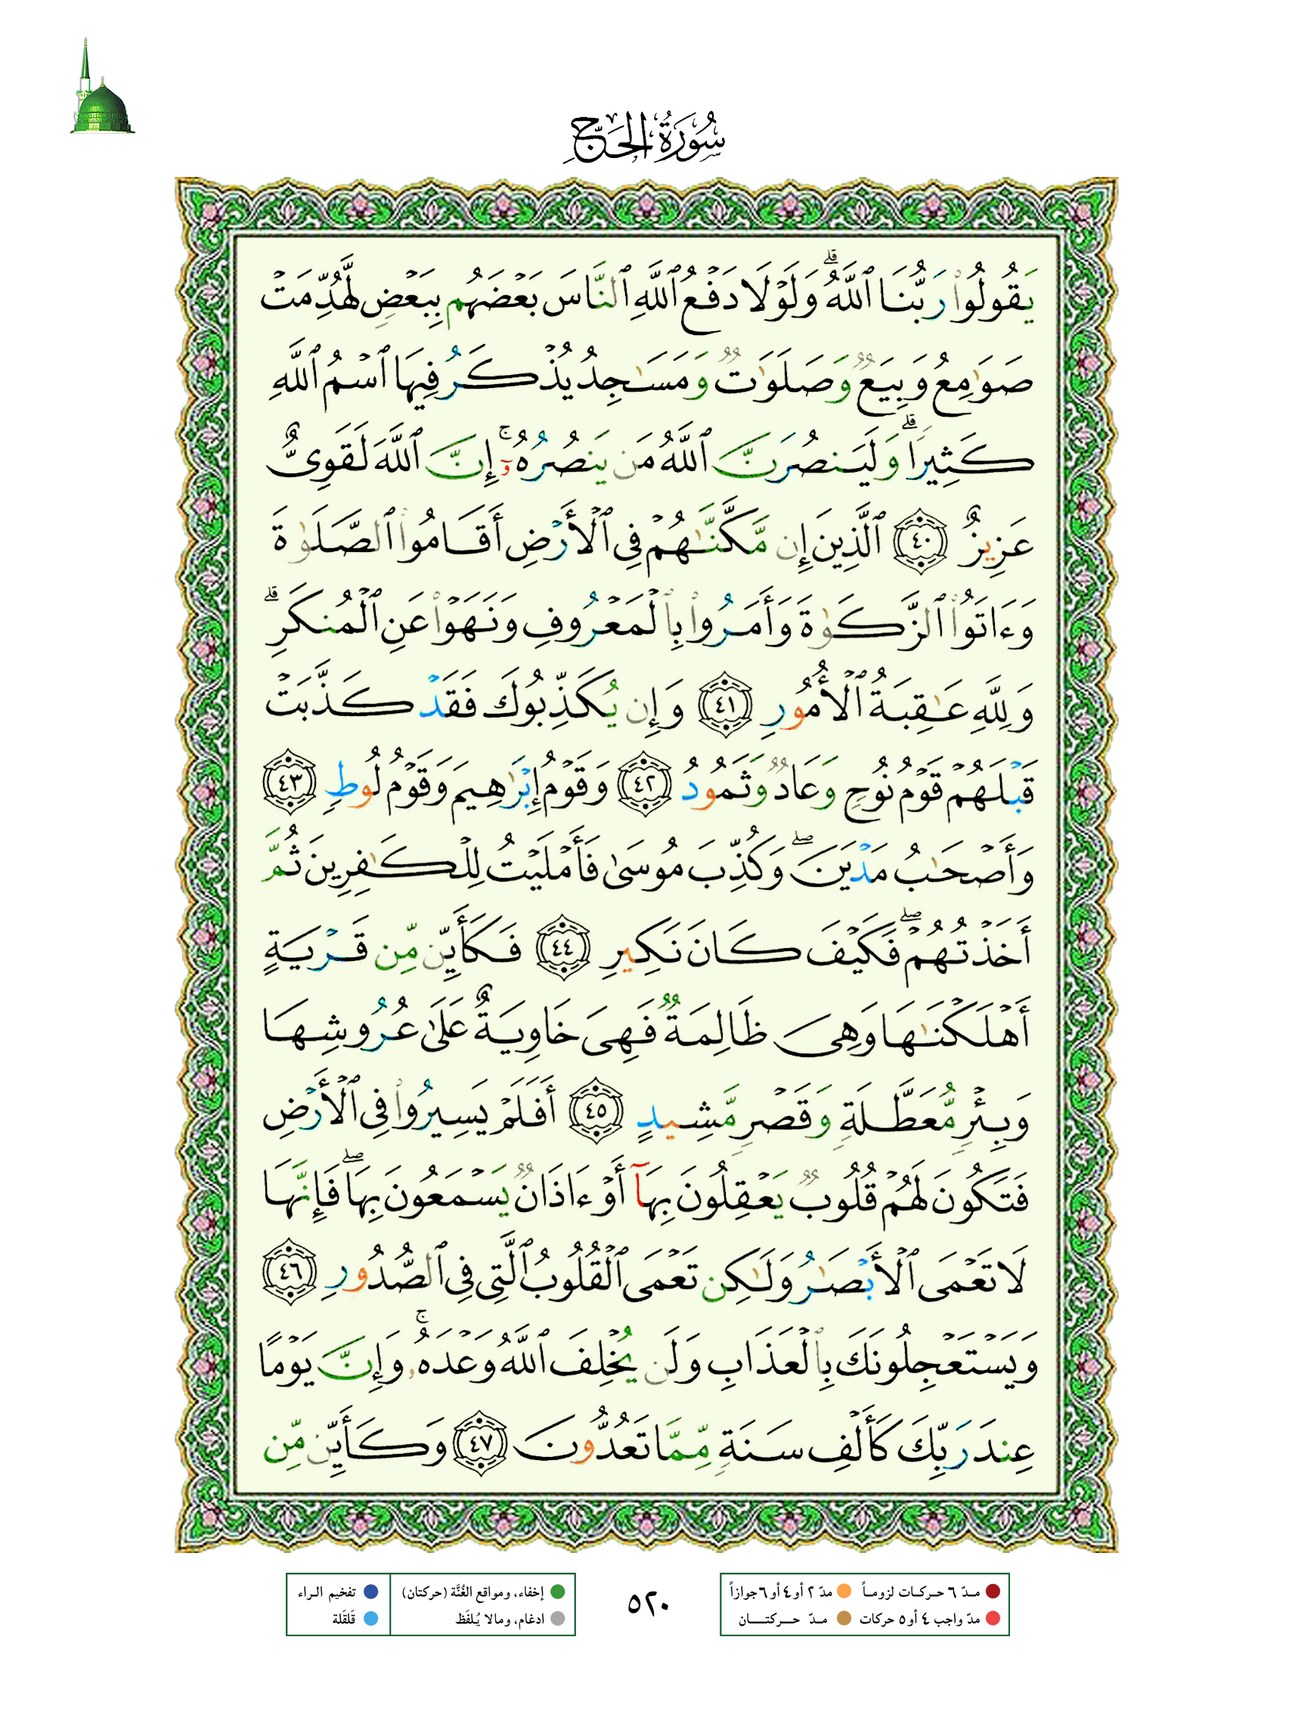 سُورَةُ الحَجِّ
يَقُولُوا۟ رَبُّنَا ٱللَّهُ ۗ وَلَوْلَا دَفْعُ ٱللَّهِ ٱلنَّاسَ بَعْضَهُم بِبَعْضٍ لَّهُدِّمَتْ
صَوَٰمِعُ وَبِيَعٌ وَصَلَوَٰتٌ وَمَسَـٰجِدُ يُذْكَرُ فِيهَا ٱسْمُ ٱللَّهِ
كَثِيرًا ۗ وَلَيَنصُرَنَّ ٱللَّهُ مَن يَنصُرُهُۥٓ ۚ إِنَّ ٱللَّهَ لَقَوِىٌّ
عَزِيزٌ ٤٠ ٱلَّذِينَ إِن مَّكَّنَّـٰهُمْ فِى ٱلْأَرْضِ أَقَامُوا۟ ٱلصَّلَوٰةَ
وَءَاتَوُا۟ ٱلزَّكَوٰةَ وَأَمَرُوا۟ بِٱلْمَعْرُوفِ وَنَهَوْا۟ عَنِ ٱلْمُنكَرِ ۗ
وَلِلَّهِ عَـٰقِبَةُ ٱلْأُمُورِ ٤١ وَإِن يُكَذِّبُوكَ فَقَدْ كَذَّبَتْ
قَبْلَهُمْ قَوْمُ نُوحٍ وَعَادٌ وَثَمُودُ ٤٢ وَقَوْمُ إِبْرَٰهِيمَ وَقَوْمُ لُوطٍ ٤٣
وَأَصْحَـٰبُ مَدْيَنَ ۖ وَكُذِّبَ مُوسَىٰ فَأَمْلَيْتُ لِلْكَـٰفِرِينَ ثُمَّ
أَخَذْتُهُمْ ۖ فَكَيْفَ كَانَ نَكِيرِ ٤٤ فَكَأَيِّن مِّن قَرْيَةٍ
أَهْلَكْنَـٰهَا وَهِىَ ظَالِمَةٌ فَهِىَ خَاوِيَةٌ عَلَىٰ عُرُوشِهَا
وَبِئْرٍ مُّعَطَّلَةٍ وَقَصْرٍ مَّشِيدٍ ٤٥ أَفَلَمْ يَسِيرُوا۟ فِى ٱلْأَرْضِ
فَتَكُونَ لَهُمْ قُلُوبٌ يَعْقِلُونَ بِهَآ أَوْ ءَاذَانٌ يَسْمَعُونَ بِهَا ۖ فَإِنَّهَا
لَا تَعْمَى ٱلْأَبْصَـٰرُ وَلَـٰكِن تَعْمَى ٱلْقُلُوبُ ٱلَّتِى فِى ٱلصُّدُورِ ٤٦
وَيَسْتَعْجِلُونَكَ بِٱلْعَذَابِ وَلَن يُخْلِفَ ٱللَّهُ وَعْدَهُۥ ۚ وَإِنَّ يَوْمًا
عِندَ رَبِّكَ كَأَلْفِ سَنَةٍ مِّمَّا تَعُدُّونَ ٤٧ وَكَأَيِّن مِّن
مدّ ٦ حركات لزوماً مدّ ٢ أو ٤ أو ٦ جوازاً
مدّ واجب ٤ أو ٥ حركات مدّ حركتان
٥٢٠
إخفاء، ومواقع الغُنَّة (حركتان) تفخيم الراء
ادغام، ومالا يُلفَظ قَلقَلة